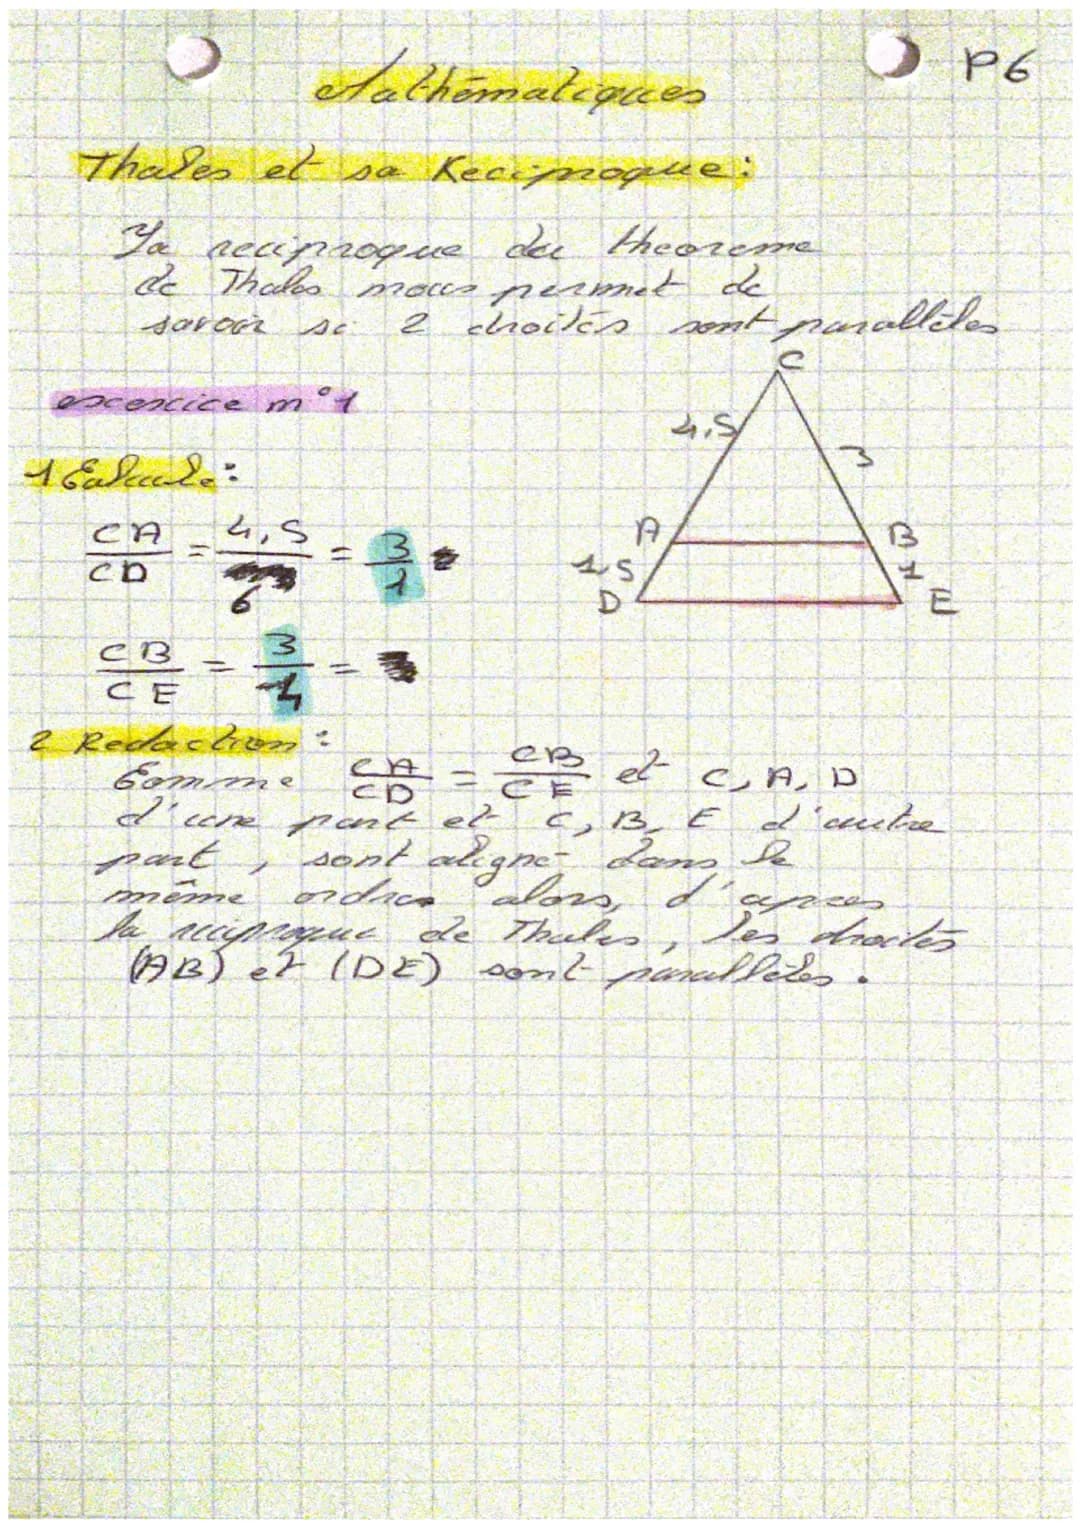 P6
Mathématiques
Thales et sa Reciproque:
La reciproque du theoreme
de Thales nous permet de
savoir si 2 droites sont parallèles
C
excercice n°1
4,5
3
1 Calcule:
CA/CD = 4,5/6 = 3/4
A
B
1,5
1
D
E
CB/CE = 3/4 =
2 Redaction:
Comme CA/CD = CB/CE et C, A, D
d'une part et C, B, E d'autre
part, sont aligné dans le
même ordre alors, d'apres
la reciproque de Thales, les droites
(AB) et (DE) sont parallèles.